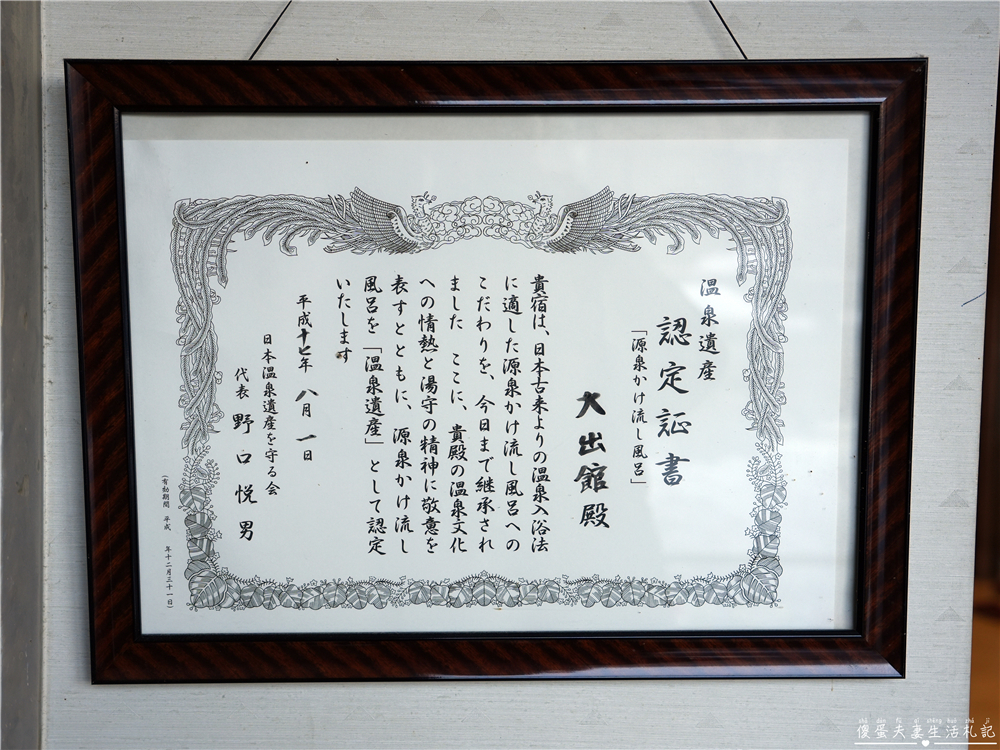 温泉遺産
認定証書
「源泉かけ流し風呂」
大出館殿
貴宿は、日本古来よりの温泉入浴法
に適した源泉かけ流し風呂への
こだわりを、今日まで継承され
ました ここに、貴殿の温泉文化
への情熱と湯守の精神に敬意を
表すとともに、源泉かけ流し
風呂を「温泉遺産」として認定
いたします
平成十七年 八月 一日
日本温泉遺産を守る会
代表 野口悦男
(有効期間 平成 年十二月三十一日)
shǎ dàn fū qī shēng huó zhá jì
傻蛋夫妻生活札記